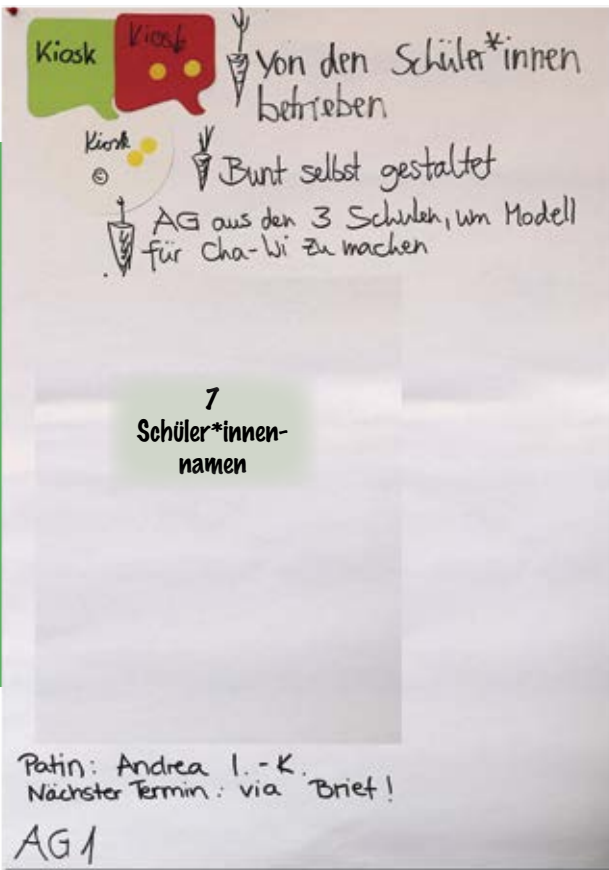 Kiosk
Kiosk
Von den Schüler*innen
betrieben
Kiosk
Bunt selbst gestaltet
AG aus den 3 Schulen, um Modell
für Cha-Wi zu machen
7
Schüler*innen-
namen
Patin: Andrea I.-K.
Nächster Termin: via Brief!
AG 1